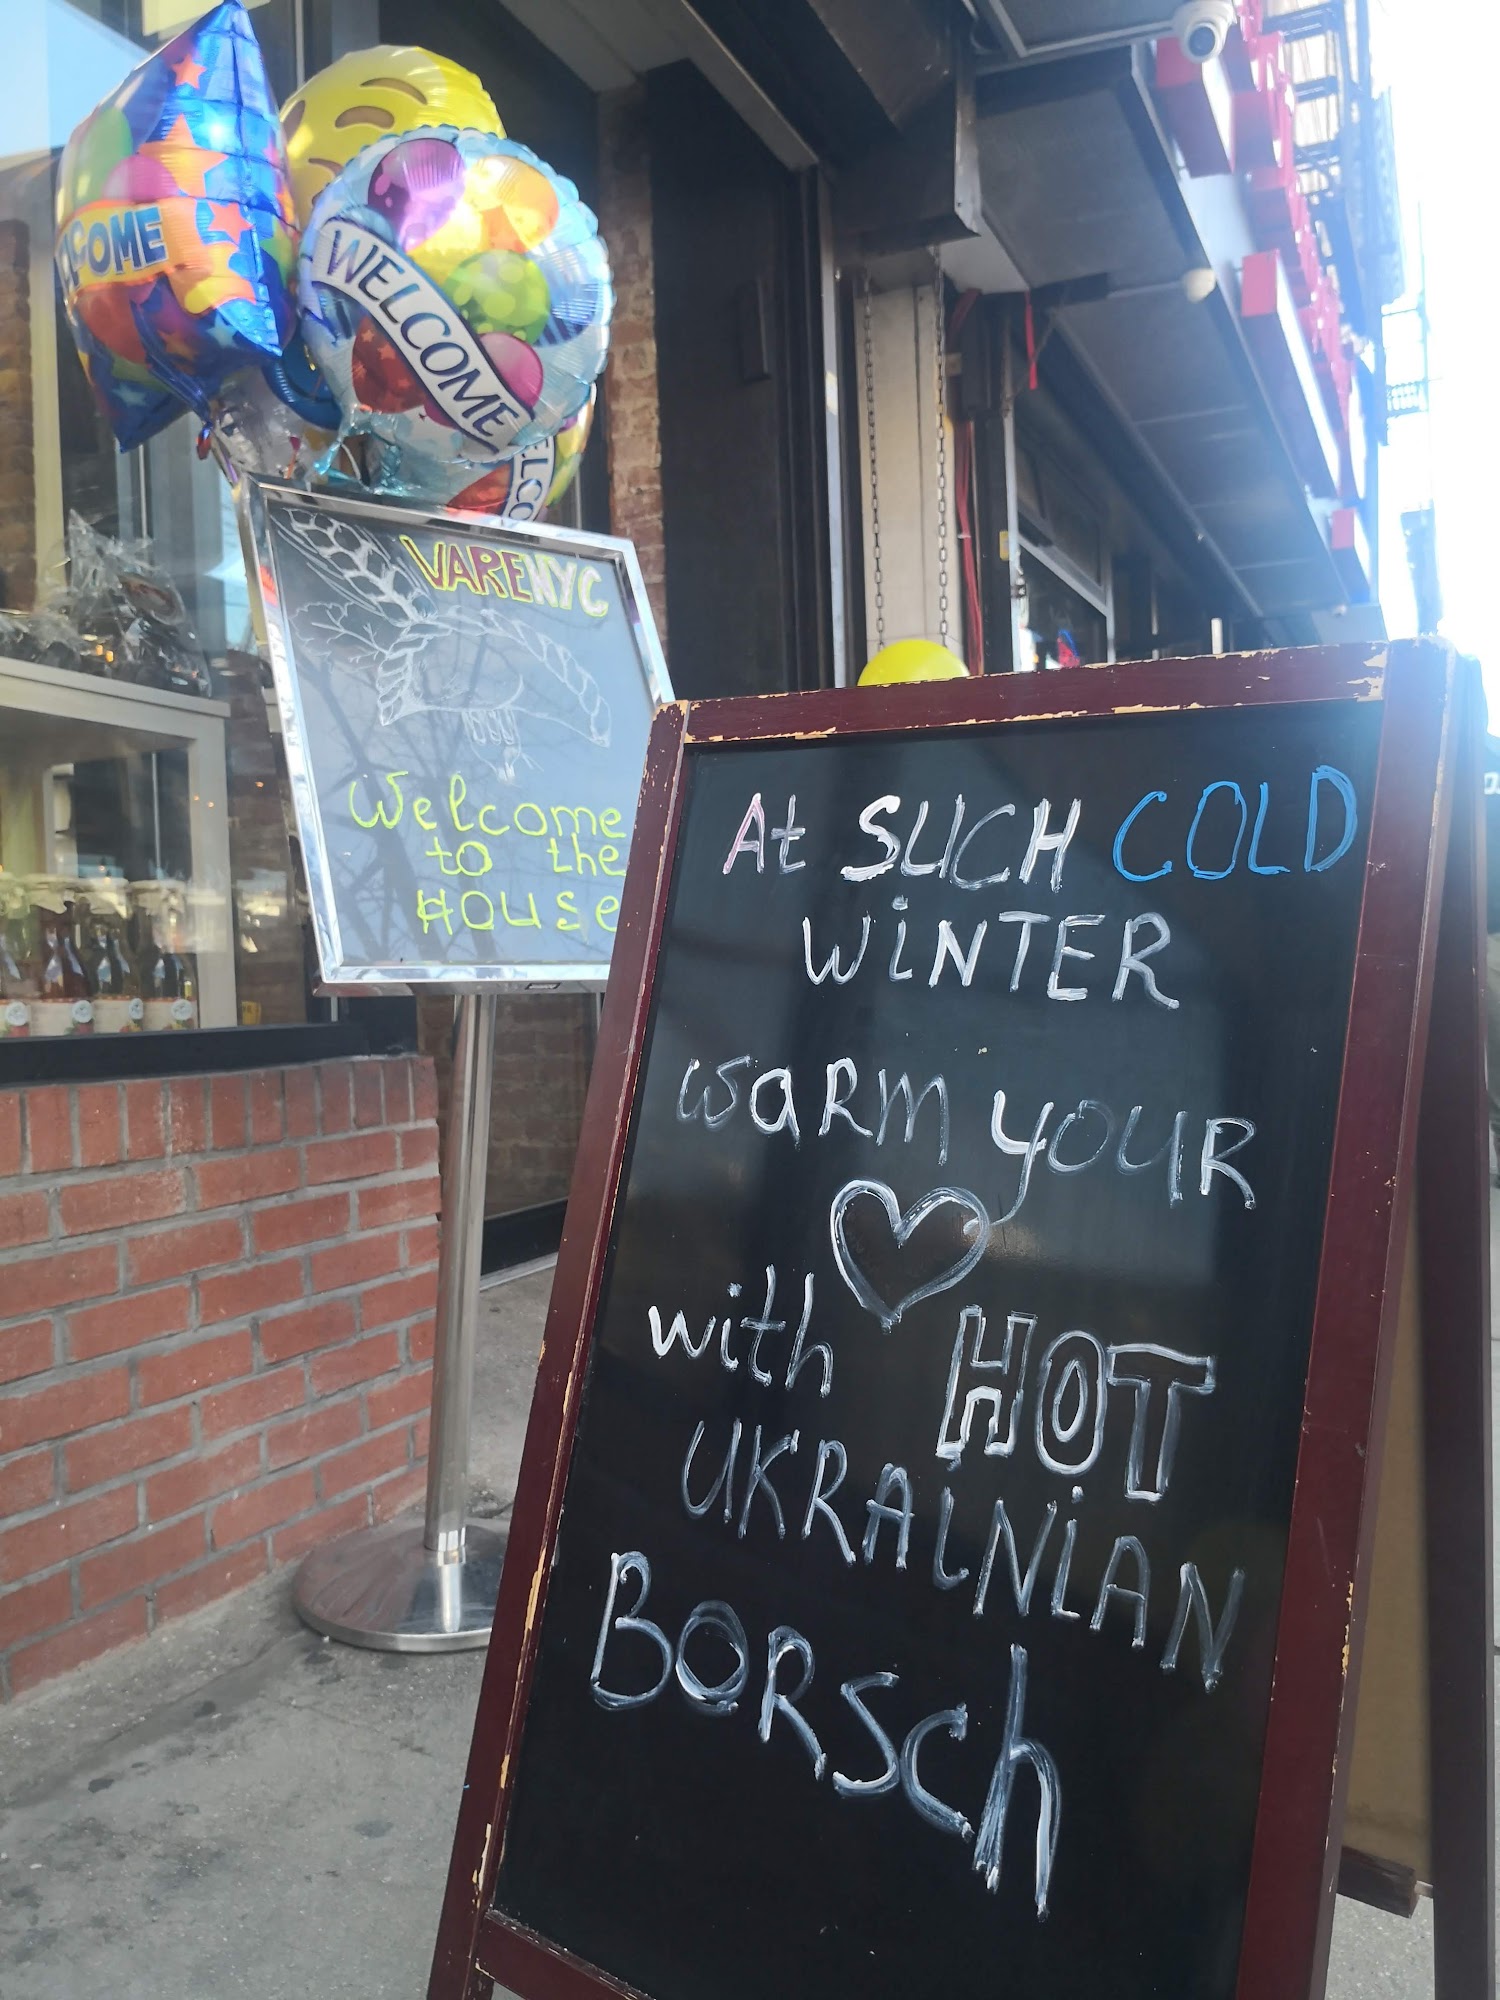 WELCOME
WELCOME
VARENYC
Welcome
to the
HOUSE
At SUCH COLD
WiNTER
waRM youR
with HOT
UKRAiNiAN
BORSch